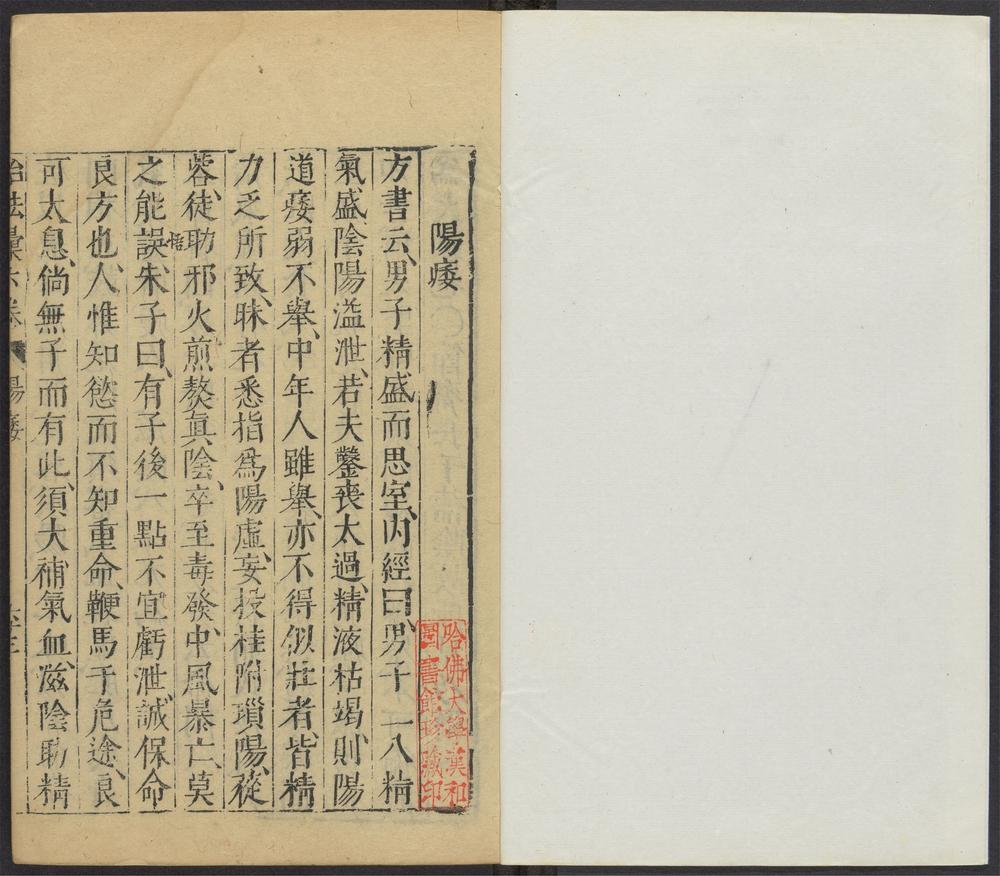 陽痿
方書云、男子精盛而思室、內經曰、男子二八精
氣盛、陰陽溢泄、若夫鑿喪太過、精液枯竭、則陽
道痿弱不舉、中年人雖舉、亦不得似壯者、皆精
力乏所致、昧者悉指爲陽虛、妄投桂附瑣陽、蓯
蓉、徒助邪火、煎熬眞陰、卒至毒發、中風暴亡、莫
之能誤、悟朱子曰、有子後一點不宜虧泄、誠保命
良方也、人惟知慾而不知重命、鞭馬于危途、良
可太息、倘無子而有此、須大補氣血、滋陰助精
治法彙六卷 陽痿
哈佛大學漢和
圖書館珍藏印